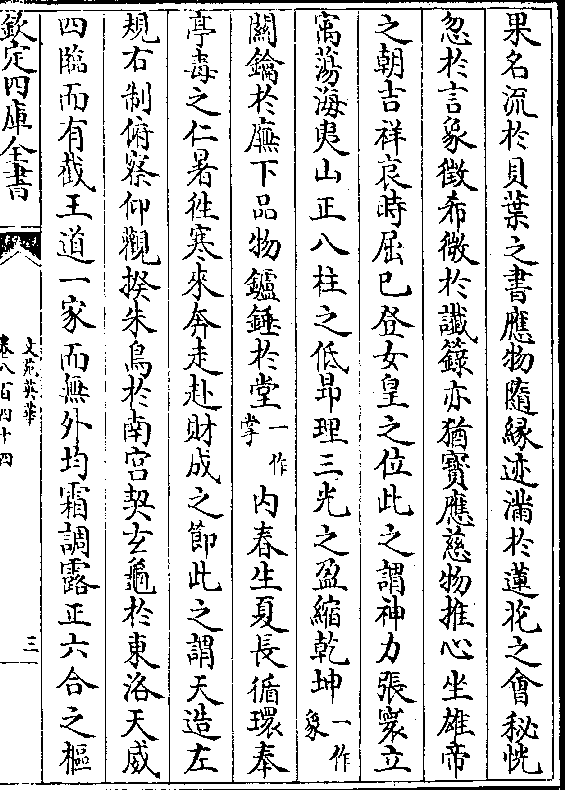 果名流於貝葉之書應物隨縁迹滿於蓮花之會秘恍
忽於言象徴希微於讖籙亦猶寳應慈物推心坐雄帝
之朝吉祥哀時屈已登女皇之位此之謂神力張寰立
㝢蕩海夷山正八柱之低昻理三光之盈縮乾坤一作象
闗鑰於廡下品物鑪錘於堂一作掌内春生夏長循環奉
亭毒之仁暑徃寒來奔走赴財成之節此之謂天造左
規右制俯察仰觀揆朱鳥於南宫契玄龜於東洛天威
四臨而有截王道一家而無外均霜調露正六合之樞
欽定四庫全書
文苑英華
卷八百四十四
三